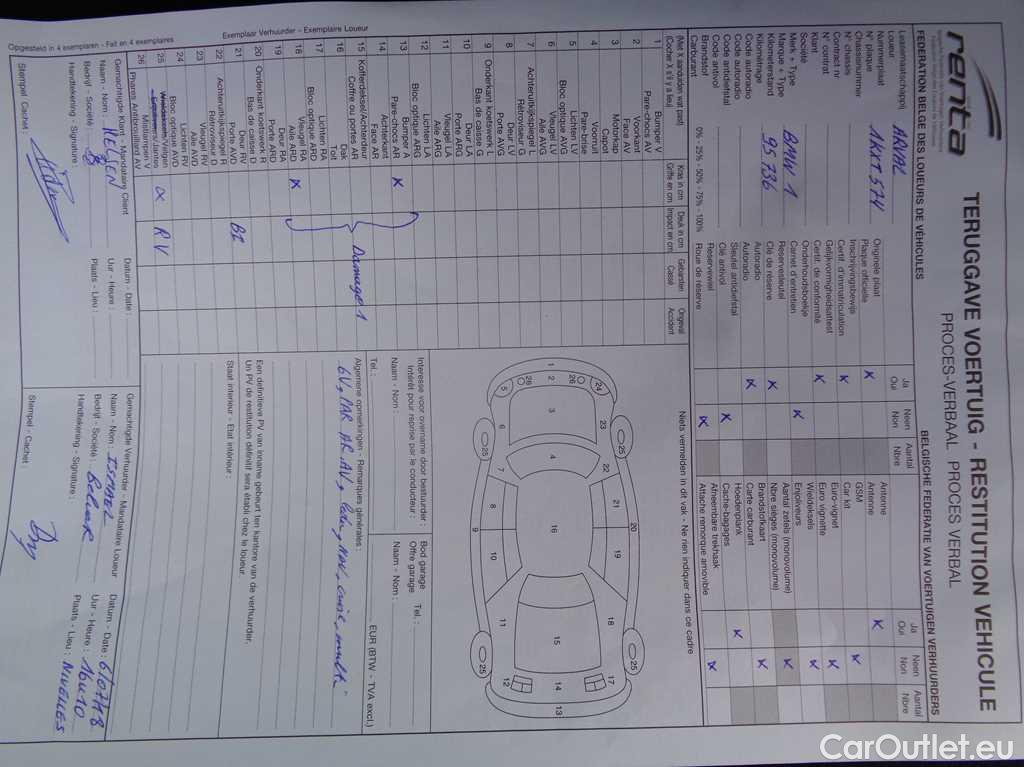 renta
TERUGGAVE VOERTUIG - RESTITUTION VEHICULE
PROCES-VERBAAL PROCES VERBAL
FEDERATION BELGE DES LOUEURS DE VÉHICULES
BELGISCHE FEDERATIE VAN VOERTUIGEN VERHUURDERS
Leasemaatschappij
Loueur
ARVAL
Nummerplaat
N° plaque
1KXT574
Chassisnummer
N° chassis
Contract nr
N° contrat
Klant
Société
Merk + Type
Marque + Type
BMW 1
Kilometerstand
Kilométrage
95736
Code autoradio
Code autoradio
Code antidiefstal
Code antivol
Brandstof
Carburant
0% - 25% - 50% - 75% - 100%
Ja
Oui
Neen
Non
Aantal
Nbre
Originele plaat
Plaque officielle
X
Inschrijvingsbewijs
Certif. d'immatriculation
X
Gelijkvormigheidsattest
Certif. de conformité
X
Onderhoudsboekje
Carnet d'entretien
X
Reservesleutel
Clé de réserve
X
Autoradio
Autoradio
X
Sleutel antidiefstal
Clé antivol
X
Reservewiel
Roue de réserve
X
Ja
Oui
Neen
Non
Aantal
Nbre
Antenne
Antenne
X
GSM
Car kit
X
Euro-vignet
Euro vignette
X
Wieldeksels
Enjoliveurs
X
Aantal zetels (monovolume)
Nbre sièges (monovolume)
X
Brandstofkaart
Carte carburant
X
Hoedenplank
Cache-bagages
X
Afneembare trekhaak
Attache remorque amovible
X
(Met X aanduiden wat past)
(Cocher X s'il y a lieu)
Kras in cm
Griffe en cm
Deuk in cm
Impact en cm
Gebarsten
Cassé
Ongeval
Accident
1 Bumper V
Pare-chocs AV
2 Voorkant
Face AV
3 Motorkap
Capot
4 Voorruit
Pare-brise
5 Lichten LV
Bloc optique AVG
6 Vleugel LV
Aile AVG
7 Achteruitkijkspiegel L
Rétroviseur G
8 Deur LV
Porte AVG
9 Onderkant koetswerk L
Bas de caisse G
10 Deur LA
Porte ARG
11 Vleugel LA
Aile ARG
12 Lichten LA
Bloc optique ARG
13 Bumper A
Pare-chocs AR
X
14 Achterkant
Face AR
15 Kofferdeksel/Achterdeur
Coffre ou portes AR
16 Dak
Toit
17 Lichten RA
Bloc optique ARD
18 Vleugel RA
Aile ARD
X
Damage 1
19 Deur RA
Porte ARD
20 Onderkant koetswerk R
Bas de caisse D
21 Deur RV
Porte AVD
BI
22 Achteruitkijkspiegel R
Rétroviseur D
23 Vleugel RV
Aile AVD
24 Lichten RV
Bloc optique AVD
25 Wieldeksels/Velgen
Enjoliveurs/Jantes
X
RV
26 Mistlampen V
Phares Antibrouillard AV
Niets vermelden in dit vak - Ne rien indiquer dans ce cadre
Interesse voor overname door bestuurder :
Intérêt pour reprise par le conducteur :
Naam - Nom :
Tel. :
Bod garage
Offre garage
Tel. :
Naam - Nom :
EUR (BTW - TVA excl.)
Algemene opmerkingen - Remarques générales :
Een definitieve PV van inname gebeurt ten kantore van de verhuurder.
Un PV de restitution définitif sera établi chez le loueur.
Staat interieur - Etat intérieur :
Gemachtigde Klant - Mandataire Client
Naam - Nom :
Bedrijf - Société :
Handtekening - Signature :
Stempel - Cachet :
Datum - Date :
Uur - Heure :
Plaats - Lieu :
Gemachtigde Verhuurder - Mandataire Loueur
Naam - Nom : ISMAEL
Bedrijf - Société :
Handtekening - Signature :
Stempel - Cachet :
Datum - Date : 6/07/18
Uur - Heure : 16u10
Plaats - Lieu : NIVELLES
Exemplaar Verhuurder - Exemplaire Loueur
Opgesteld in 4 exemplaren - Fait en 4 exemplaires
CarOutlet.eu